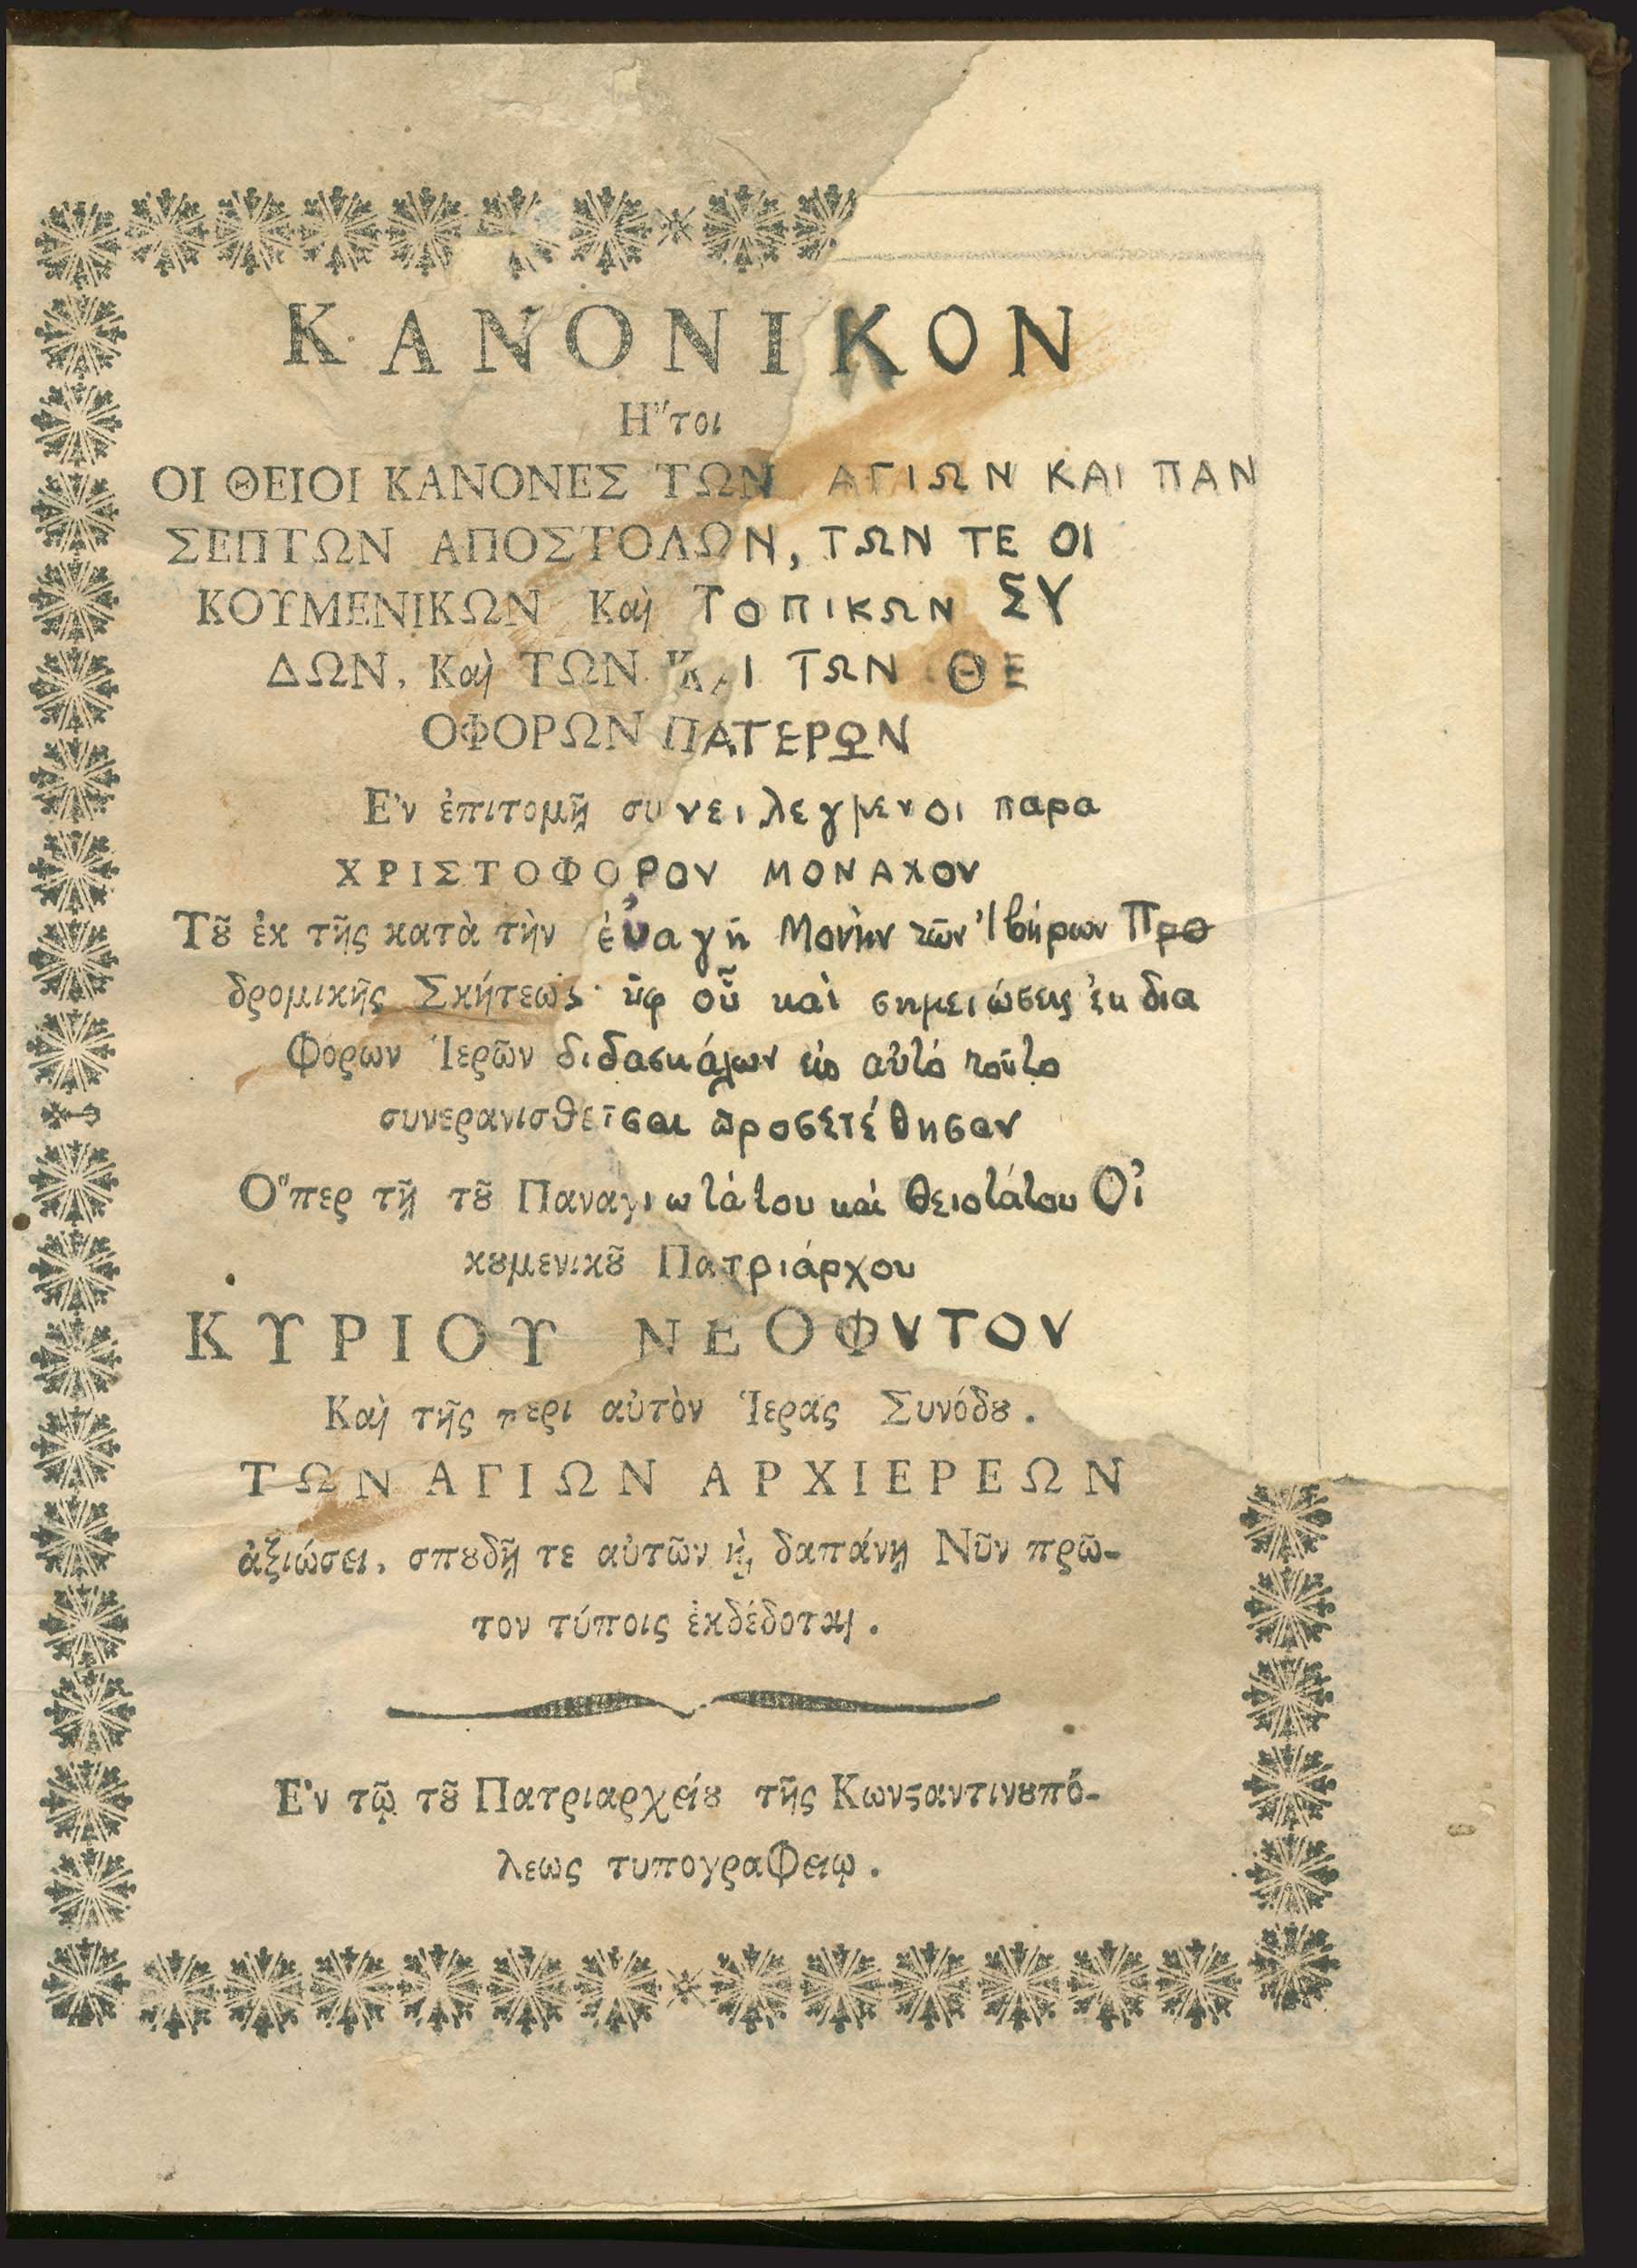 ΚΑΝΟΝΙΚΟΝ
Η῎τοι
ΟΙ ΘΕΙΟΙ ΚΑΝΟΝΕΣ ΤΩΝ ΑΓΙΩΝ ΚΑΙ ΠΑΝ
ΣΕΠΤΩΝ ΑΠΟΣΤΟΛΩΝ, ΤΩΝ ΤΕ ΟΙ
ΚΟΥΜΕΝΙΚΩΝ Καὶ ΤΟΠΙΚΩΝ ΣΥ
ΔΩΝ, Καὶ ΤΩΝ ΚΑΙ ΤΩΝ ΘΕ
ΟΦΟΡΩΝ ΠΑΤΕΡΩΝ
Ε᾿ν ἐπιτομῇ συνειλεγμενοι παρα
ΧΡΙΣΤΟΦΟΡΟΥ ΜΟΝΑΧΟΥ
Τȣ͂ ἐκ τῆς κατὰ τὴν ἐὐαγῆ Μονὴν τῶν Ἰβήρων Προ
δρομικῆς Σκήτεως· ὑφ οὗ καὶ σημειώσεις ἐκ δια
Φόρων Ἱερῶν διδασκάλων εἰς αὐτὸ τοῦτο
συνερανισθεῖσαι προσετέθησαν
Ο῞περ τῇ τȣ͂ Παναγιωτάτου καὶ θειοτάτου Οἰ
κȣμενικȣ͂ Πατριάρχου
ΚΥΡΙΟΥ ΝΕΟΦΥΤΟΥ
Καὶ τῆς περι αὐτὸν Ἱερᾶς Συνόδȣ.
ΤΩΝ ΑΓΙΩΝ ΑΡΧΙΕΡΕΩΝ
ἀξιώσει, σπȣδῇ τε αὐτῶν ϗ̀ δαπάνῃ Νῦν πρῶ-
τον τύποις ἐκδέδοται.
Ε᾿ν τῷ τȣ͂ Πατριαρχείȣ τῆς Κωνϛαντινȣπό-
λεως τυπογραΦειῳ.